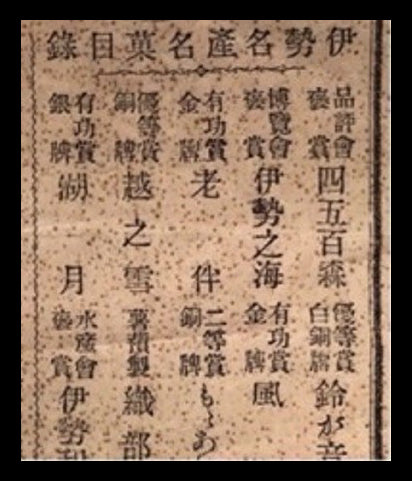 伊勢名產名菓目錄
品評會褒賞 四五百森 優等賞白銅牌 鈴が音
博覽會褒賞 伊勢之海 有功賞金牌 風
有功賞金牌 老伴 二等賞銅牌 もゝあ
優等賞銅牌 越之雪 薯蕷製 織部
有功賞銀牌 湖月 水產會褒賞 伊勢